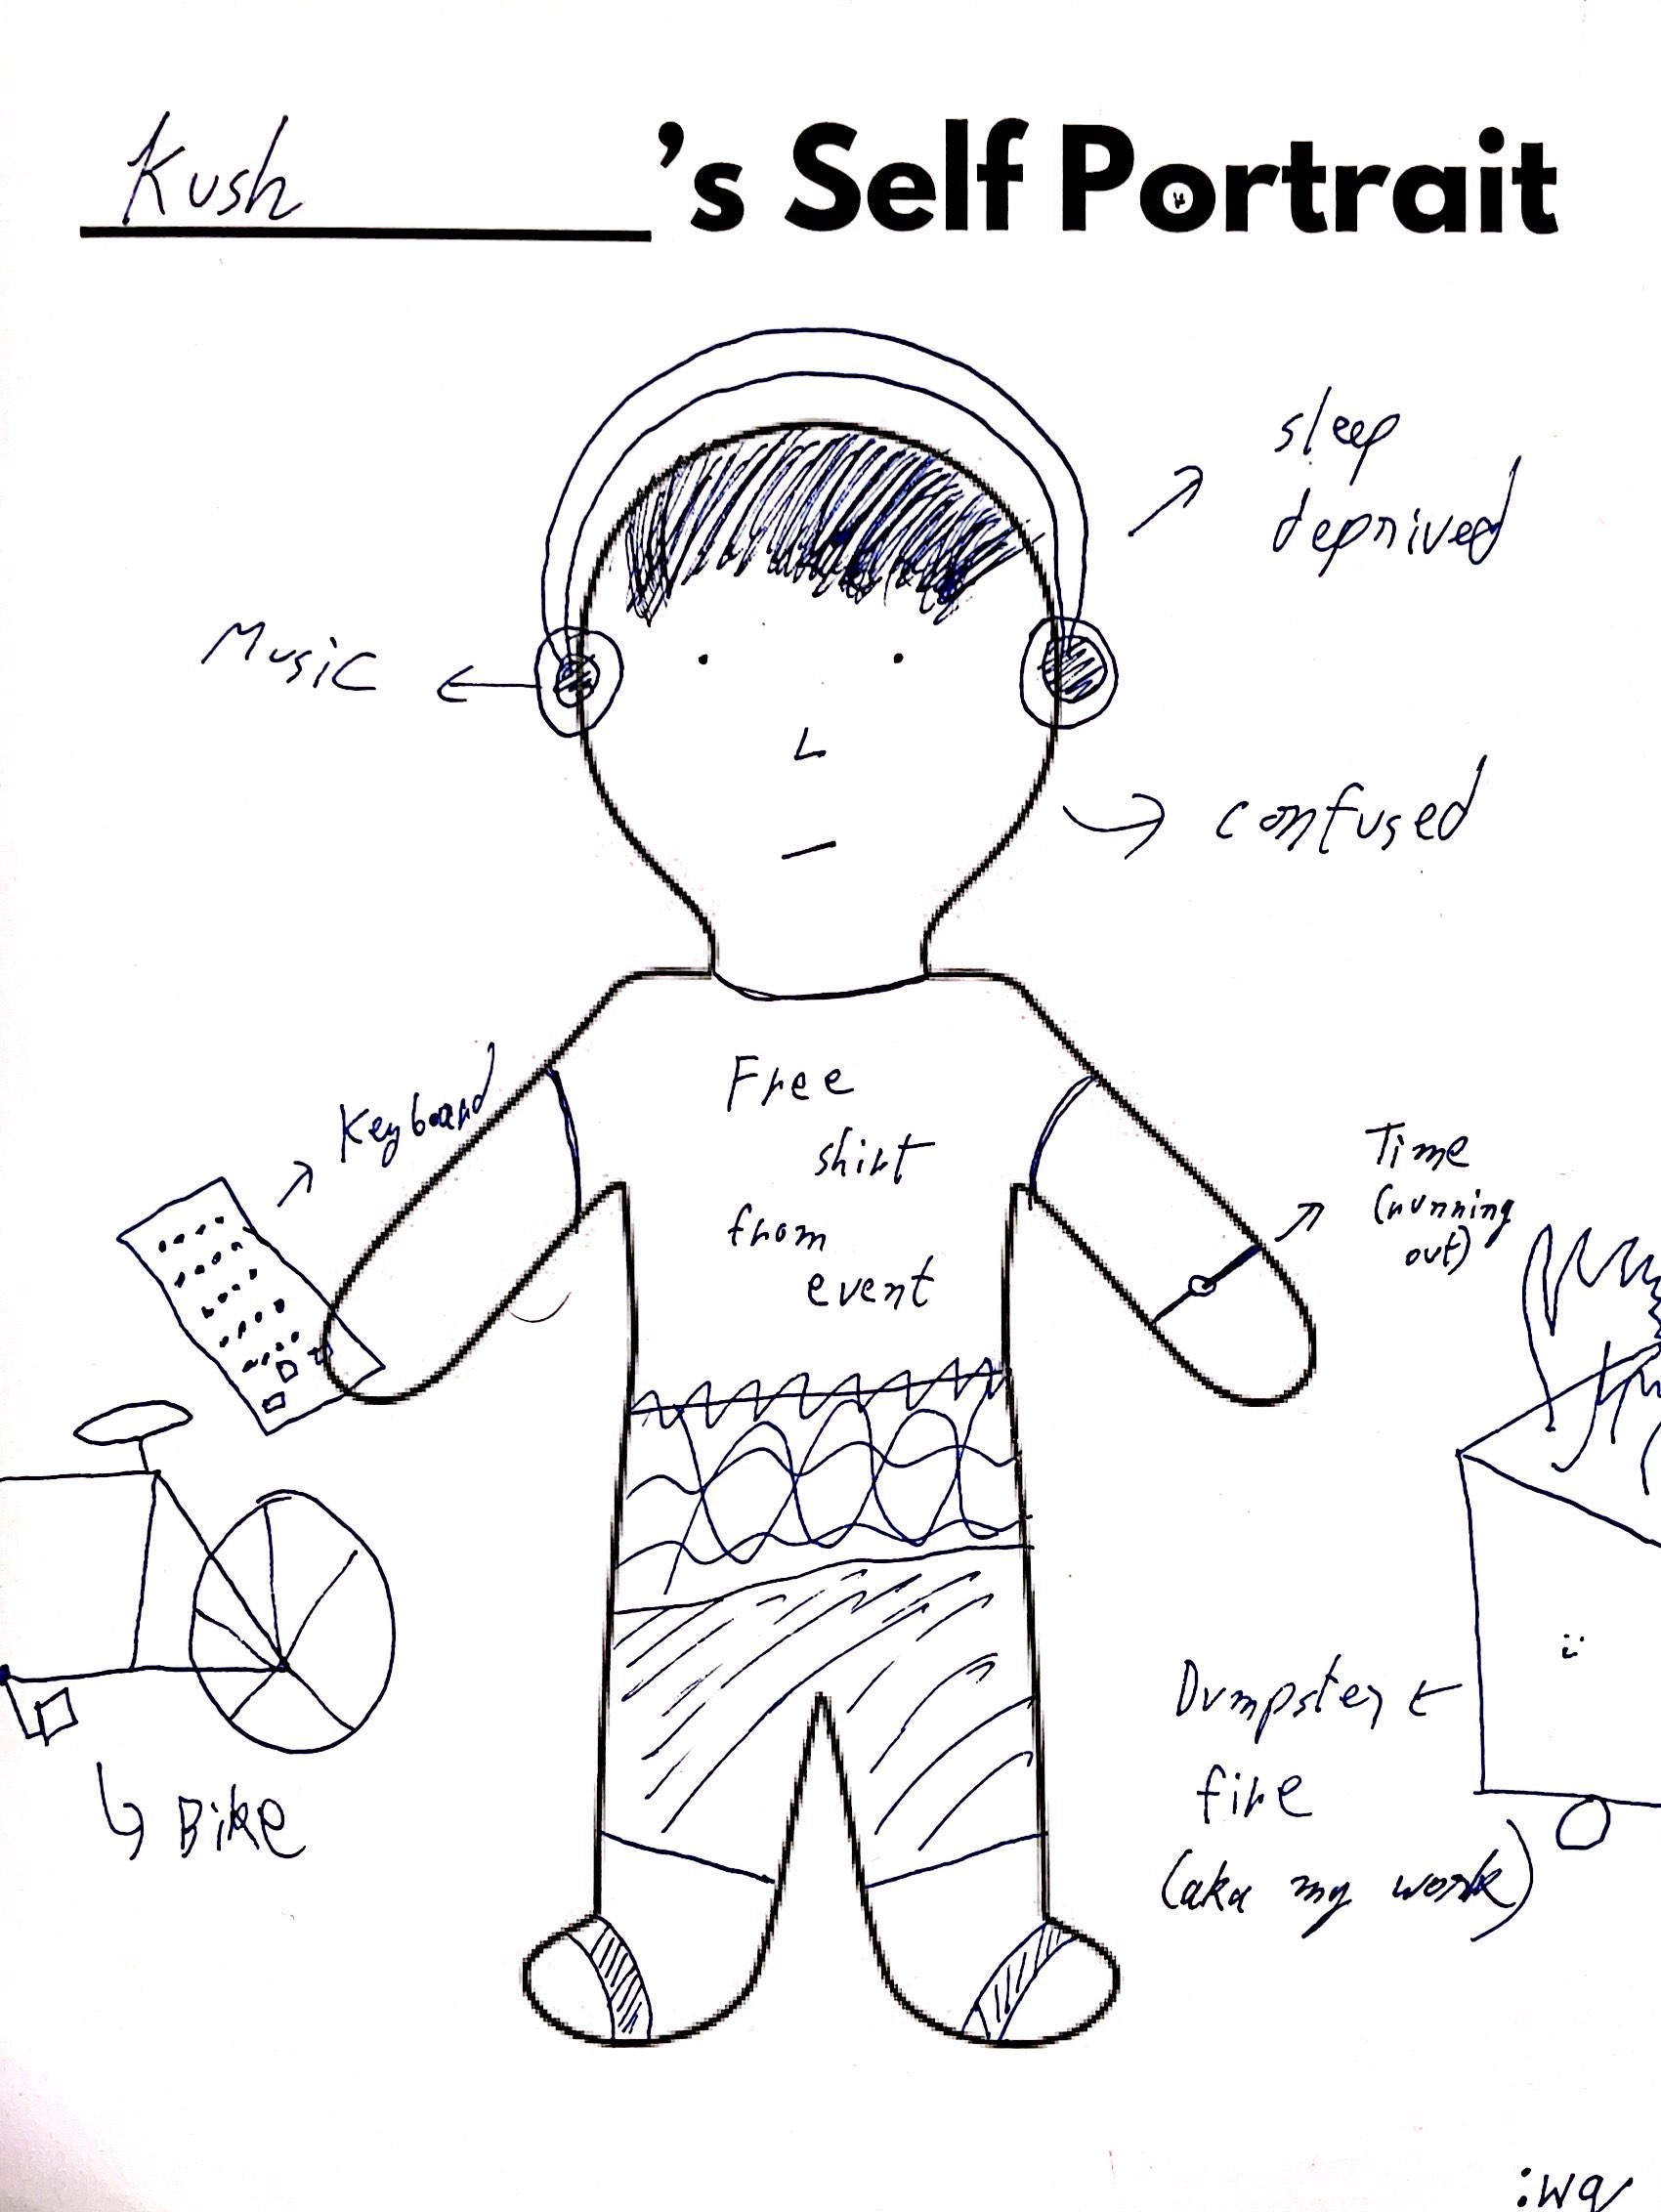 Kush's Self Portrait
sleep
deprived
Music
confused
Free
shirt
from
event
Keyboard
Time
(running
out)
Bike
Dumpster
fire
(aka my work)
:wq